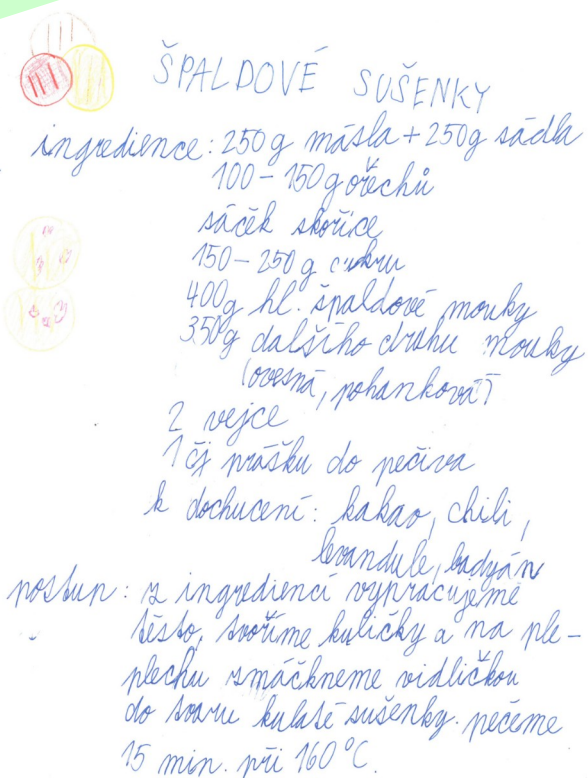 ŠPALDOVÉ SUŠENKY
ingredience: 250g másla + 250g sádla
100 - 150g ořechů
sáček skořice
150 - 250 g cukru
400g hl. špaldové mouky
350g dalšího druhu mouky
(ovesná, pohanková)
2 vejce
1 čj prášku do pečiva
k dochucení: kakao, chili,
levandule, badyán
postup: z ingrediencí vypracujeme
těsto, tvoříme kuličky a na ple-
plechu zmáčkneme vidličkou
do tvaru kulaté sušenky. pečeme
15 min. při 160°C.